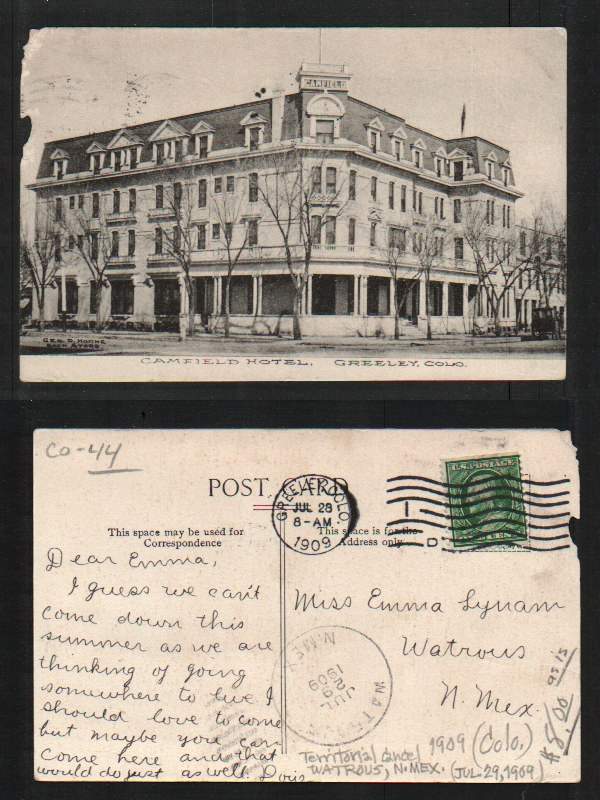 CAMFIELD
GEO. D. HORNE
BOOK STORE
CAMFIELD HOTEL, GREELEY, COLO.
CO-44
POST CARD
GREELEY, COLO.
JUL 28
8-AM
1909
1
D
U.S. POSTAGE
This space may be used for
Correspondence
This space is for the
Address only
Dear Emma,
I guess we can't
come down this
summer as we are
thinking of going
somewhere to live I
should love to come
but maybe you can
come here and that
would do just as well. Doris
Miss Emma Lynam
Watrous
N. Mex.
WATROUS
N. MEX
JUL
29
1909
Territorial Cancel
WATROUS, N. MEX.
1909 (Colo.)
(JUL 29, 1909)
$8.00
as is